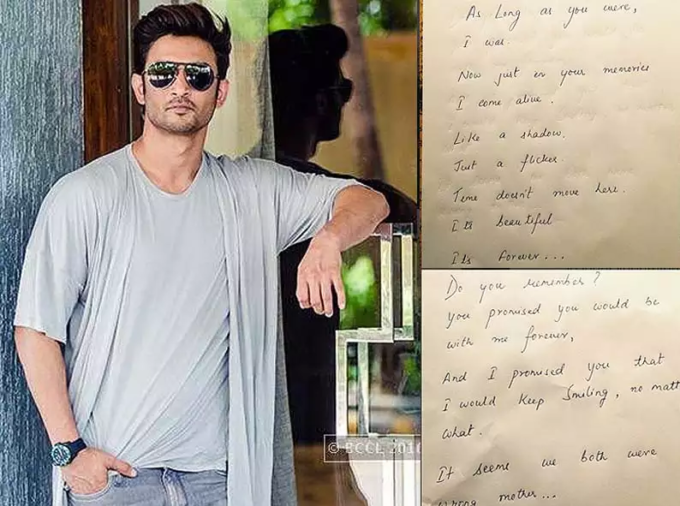 As Long as you were,
I was.
Now just in your memories
I come alive.
Like a shadow.
Just a flicker.
Time doesn't move here.
Its beautiful
Its forever...
Do you remember?
you promised you would be
with me forever,
And I promised you that
I would Keep Smiling, no matt
what.
It seems we both were
wrong mother...
© BCCL 2016